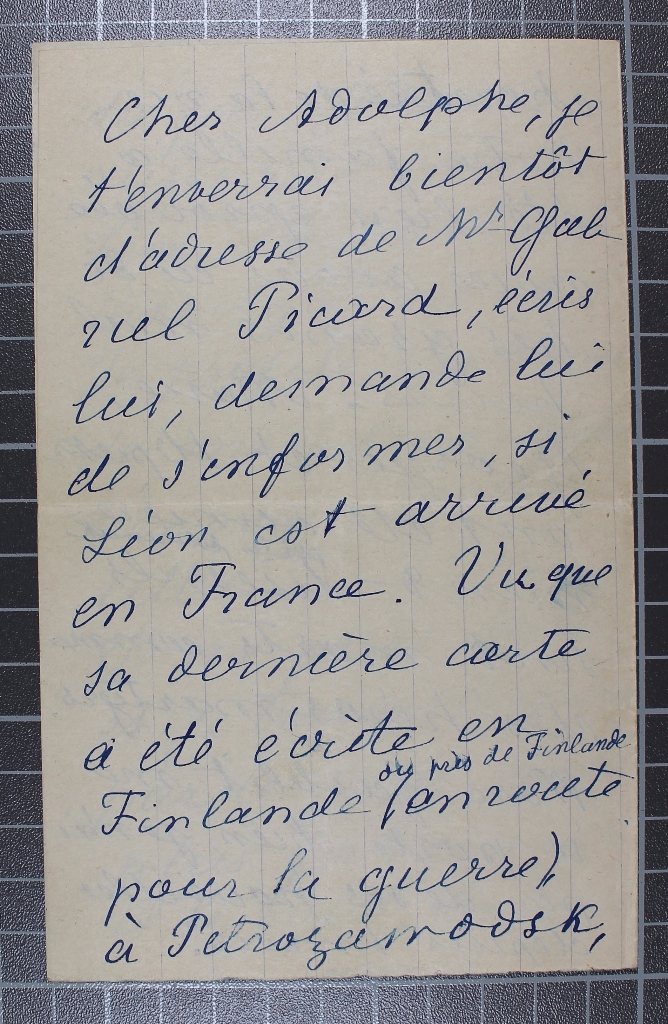 Cher Adolphe, je
t'enverrai bientôt
d'adresse de Mr Gab
riel Picard, écris
lui, demande lui
de s'informer, si
Léon est arrivé
en France. Vu que
sa dernière carte
a été écrite en
ou près de Finlande
Finlande (en route
pour la guerre),
à Petrozawodsk,